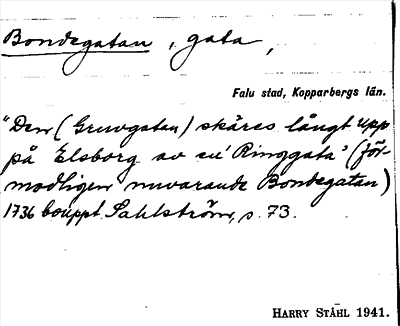 Bondegatan, gata,
Falu stad, Kopparbergs län.
"Den (Gruvgatan) skäres långt upp
på Elsborg av en 'Ringgata'" (för-
modligen nuvarande Bondegatan)
1736 bouppt. Sahlström, s. 73.
HARRY STÅHL 1941.